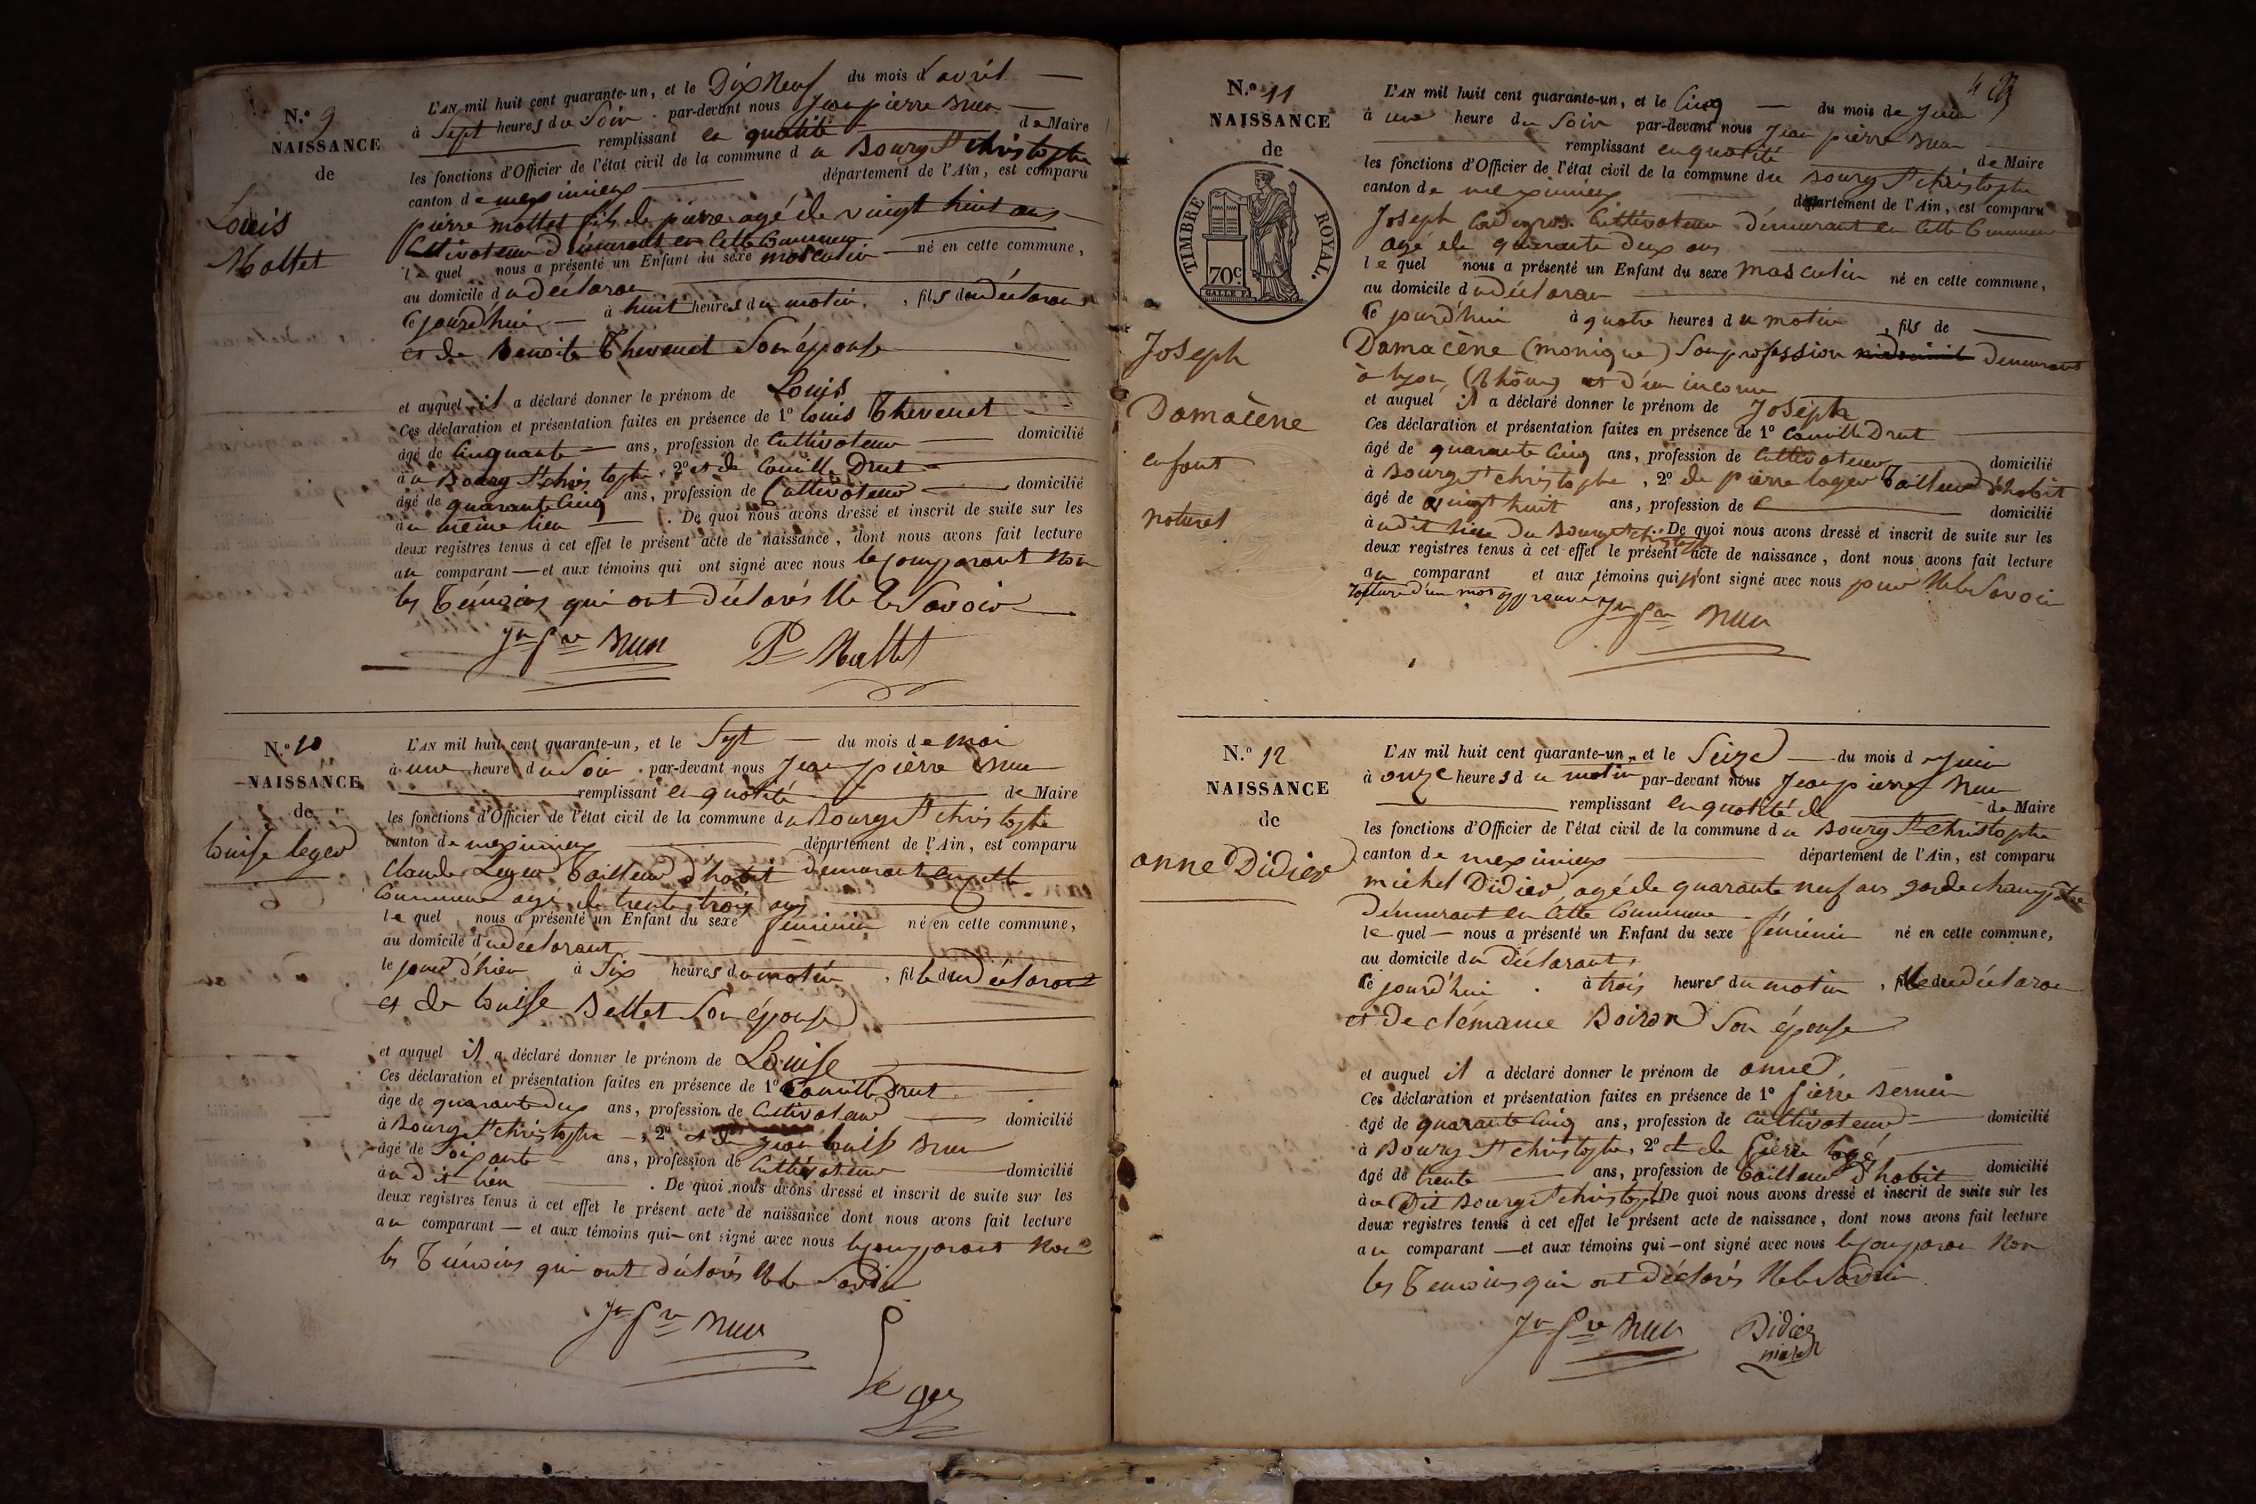 N.° 9
NAISSANCE
de
Louis
Mollet
L'AN mil huit cent quarante-un, et le Dix Neuf du mois d'avril
à Sept heures du Soir par-devant nous Jean pierre Brun
remplissant en qualité de Maire
les fonctions d'Officier de l'état civil de la commune du Bourg St christophe
canton de meximieux département de l'Ain, est comparu
pierre mollet fils de pierre agé de vingt huit ans
Cultivateur demeurant en Cette Commune
lequel nous a présenté un Enfant du sexe masculin né en cette commune,
au domicile du déclaran
Ce jourd'hui à huit heures du matin, fils du déclarant
et de Benoite Thevenet Son épouse
et auquel il a déclaré donner le prénom de Louis
Ces déclaration et présentation faites en présence de 1° Louis Thevenet
âgé de Cinquante ans, profession de Cultivateur domicilié
à u Bourg St christophe, 2° et de Camille Drut
âgé de quarante Cinq ans, profession de Cultivateur domicilié
au meme lieu. De quoi nous avons dressé et inscrit de suite sur les
deux registres tenus à cet effet le présent acte de naissance, dont nous avons fait lecture
au comparant et aux témoins qui ont signé avec nous le Comparant Non
les Témoins qui ont Déclarés Ne le Savoir
Jn Pre Brun Pre Mollet
N.° 10
NAISSANCE
de
Louise leger
L'AN mil huit cent quarante-un, et le Sept du mois de mai
à une heure du Soir par-devant nous Jean pierre Brun
remplissant en qualité de Maire
les fonctions d'Officier de l'état civil de la commune du Bourg St christophe
canton de meximieux département de l'Ain, est comparu
Claude Leger Tailleur d'habit demeurant en cette
Commune agé de trente trois ans
lequel nous a présenté un Enfant du sexe féminin né en cette commune,
au domicile du declarant
le jour d'hier à Six heures du matin, fille du declarant
et de Louise Bellet Son épouse
et auquel il a déclaré donner le prénom de Louise
Ces déclaration et présentation faites en présence de 1° Camille Drut
âgé de quarante deux ans, profession de Cultivateur domicilié
à Bourg St christophe, 2° et de Jean Louis Brun
âgé de Soixante ans, profession de Cultivateur domicilié
au dit lieu. De quoi nous avons dressé et inscrit de suite sur les
deux registres tenus à cet effet le présent acte de naissance dont nous avons fait lecture
au comparant et aux témoins qui ont signé avec nous le Comparant Non
les Témoins qui ont déclarés Ne le Savoir
Jn Pre Brun
Leger
N.° 11
NAISSANCE
de
TIMBRE ROYAL.
70c.
Joseph
Damacène
enfant
naturel
L'AN mil huit cent quarante-un, et le Cinq du mois de Juin
à une heure du Soir par-devant nous Jean pierre Brun
remplissant en qualité de Maire
les fonctions d'Officier de l'état civil de la commune du Bourg St christophe
canton de meximieux département de l'Ain, est comparu
Joseph Cultivateur démeurant en Cette Commune
agé de quarante deux ans
lequel nous a présenté un Enfant du sexe masculin né en cette commune,
au domicile du déclaran
Ce jourd'hui à quatre heures du matin, fils de
Damacène (monique) Son profession demeurant
à lyon, (Rhône) et d'un inconnu
et auquel il a déclaré donner le prénom de Joseph
Ces déclaration et présentation faites en présence de 1° Camille Drut
âgé de quarante Cinq ans, profession de Cultivateur domicilié
à Bourg St christophe, 2° de pierre loger Tailleur d'habit
âgé de vingt huit ans, profession de domicilié
audit lieu du Bourg St christophe. De quoi nous avons dressé et inscrit de suite sur les
deux registres tenus à cet effet le présent acte de naissance, dont nous avons fait lecture
au comparant et aux témoins qui n'ont signé avec nous pour Ne le Savoir
Rature d'un mot approuvé Jn Pre Brun
N.° 12
NAISSANCE
de
anne Didier
L'AN mil huit cent quarante-un, et le Seize du mois de Juin
à onze heures du matin par-devant nous Jean pierre Brun
remplissant en qualité de de Maire
les fonctions d'Officier de l'état civil de la commune du Bourg St christophe
canton de meximieux département de l'Ain, est comparu
michel Didier agé de quarante neuf ans garde champêtre
Démeurant en Cette Commune
lequel nous a présenté un Enfant du sexe féminin né en cette commune,
au domicile du déclarant
Ce jourd'hui à trois heures du matin, fille du déclaran
et De clémance Boiron Son épouse
et auquel il a déclaré donner le prénom de anne
Ces déclaration et présentation faites en présence de 1° pierre Bernin
âgé de quarante Cinq ans, profession de Cultivateur domicilié
à Bourg St christophe, 2° et de Pierre logé
âgé de trente ans, profession de Tailleur d'habit domicilié
au Dit Bourg St christophe De quoi nous avons dressé et inscrit de suite sur les
deux registres tenus à cet effet le présent acte de naissance, dont nous avons fait lecture
au comparant et aux témoins qui ont signé avec nous le Comparan Non
les Temoins qui ont Déclarés Ne le Savoir
Jn Pre Brun Didier